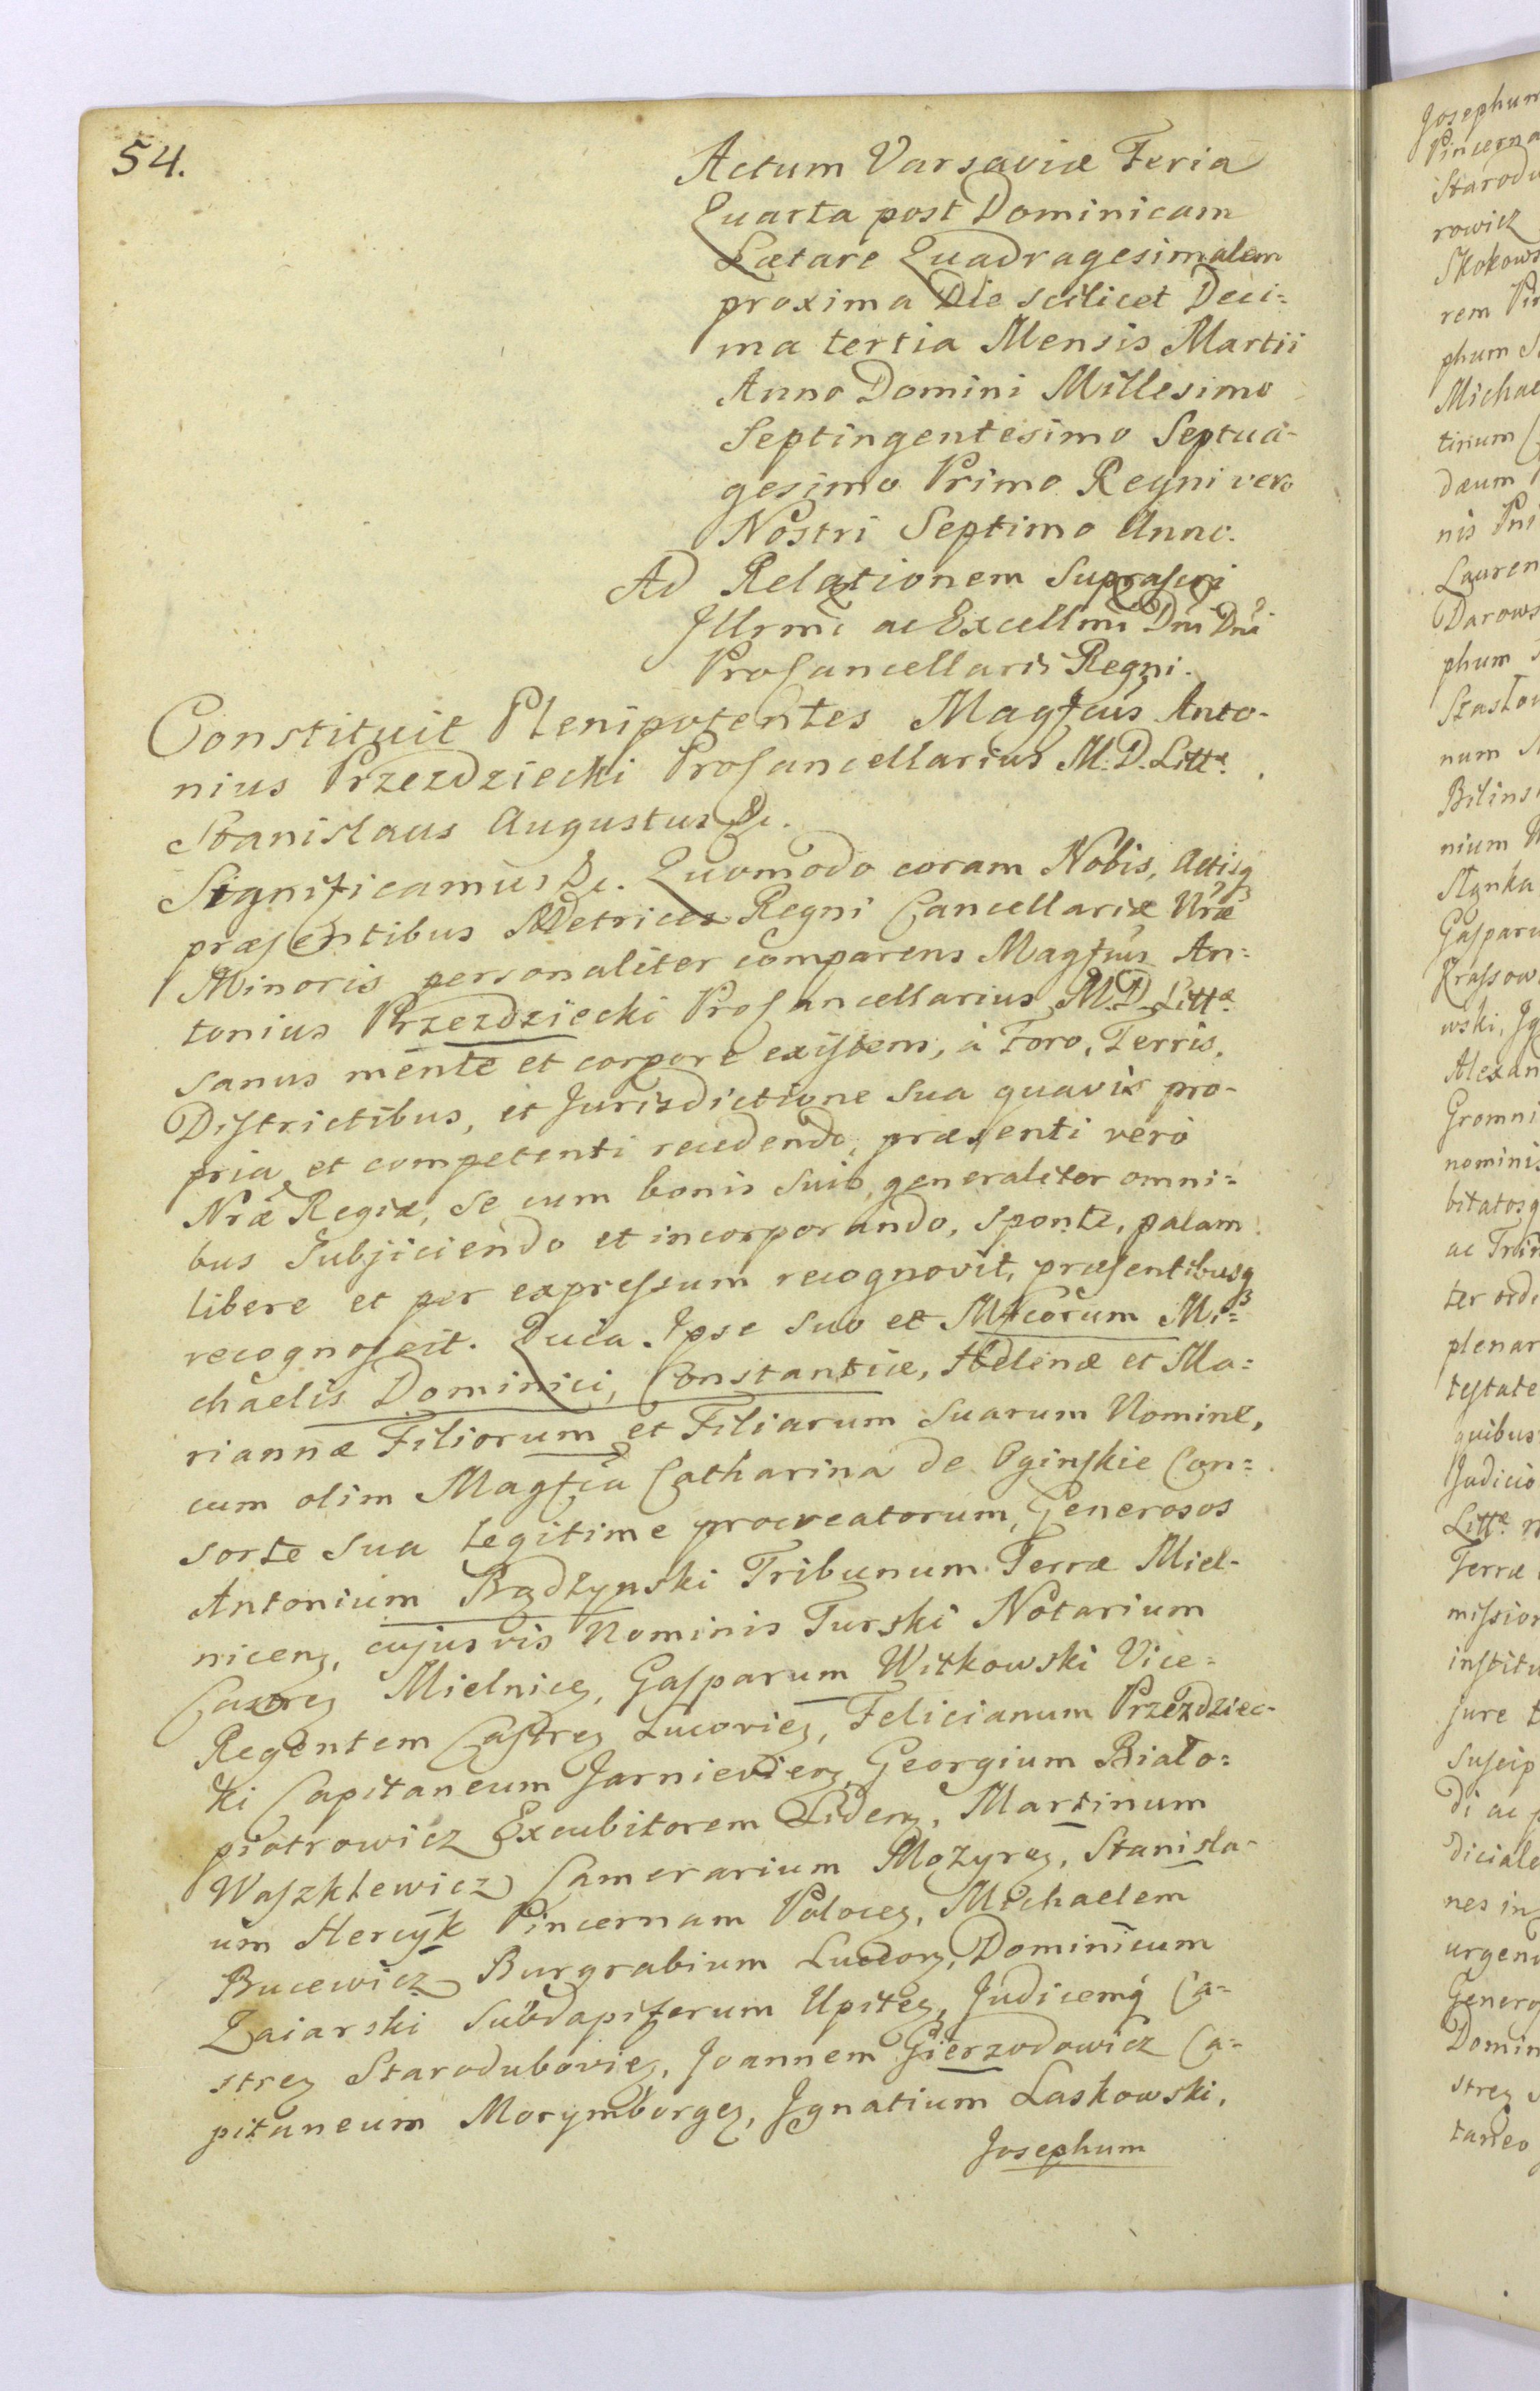 54.
Actum Varsaviæ Feria
Quarta post Dominicam
Lætare Quadragesimalem
proxima Die scilicet Deci=
ma tertia Mensis Martii
Anno Domini Millesimo
Septingentesimo Septua-
gesimo Primo Regni vero
Nostri Septimo Anno.
Ad Relationem Suprascri
Illrmi ac Excellmi Dni Dni
ProCancellarii Regni.
Constituit Plenipotentes Magfcus Anto-
nius Przezdziecki ProCancellarius M. D. Littæ.
Stanislaus Augustus &c.
Significamus &c. Quomodo coram Nobis, Actisq3
præsentibus Metrices Regni Cancellariæ Nræ
Minoris personaliter comparens Magfcus An=
tonius Przezdziecki ProCancellarius M.D. Littæ
sanus mente et corpore existens, à Foro, Terris,
Districtibus, et Jurisdictione sua quavis pro-
pria et competenti recedendo, præsenti verò
Nræ Regiæ, se cum bonis suis, generaliter omni=
bus Subjiciendo et incorporando, sponte, palam
libere et per expressum recognovit, præsentibusq3
recognoscit. Quia Ipse suo et Mfcorum Mi=
chaelis Dominici, Constantiæ, Helenæ et Ma=
riannæ Filiorum et Filiarum suarum Nomine,
cum olim Magfca Catharina de Oginskie Con=
sorte sua legitime procreatorum, Generosos
Antonium Bądzynski Tribunum Terræ Miel-
nicen, cujusvis Nominis Turski Notarium
Castren Mielnicen, Gasparum Witkowski Vice=
Regentem Castren Lucorien, Felicianum Przezdziec-
ki Capitaneum Jarnievien, Georgium Biało=
piotrowicz Excubitorem Liden, Martinum
Waszklewicz Camerarium Mozyren, Stanisla-
um Hercyk Pincernam Polocen, Michaelem
Bucewicz Burgrabium Luceon, Dominicum
Zaiarski Subdapiferum Upiten, Judicemq Ca=
stren Starodubovien, Joannem Gierzodowicz Ca=
pitaneum Morymborgen, Ignatium Laskowski,
Josephum
Josephum
rowicz
rem
Michae
tinum
dæum
nis
Lauren
Darows
phum
num
Bilins
nium
Gasparu
Krassow
wski, Ig
Alexan
Gromni
nominis
bitatosq
ter ordi
plenar
testate
quibus
Judicio
Littæ
Terræ
mission
institu
jure
Suscip
di ac
diciale
nes in
urgen
Genero
Domin
stren
taneo